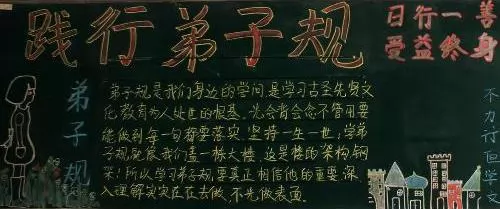 践行弟子规
日行一善
受益终身
弟子规
弟子规是我们身边的学问,是学习古圣先贤文
化,教育为人处世的根基。先会背会念不管用要
能做到每一句都要落实,坚持一生一世;学弟
子规就像我们盖一栋大楼,这是楼的架构钢
架!所以学习弟子规,要真正相信他的重要,深
入理解,实实在在去做,不光做表面。
不力行但学文